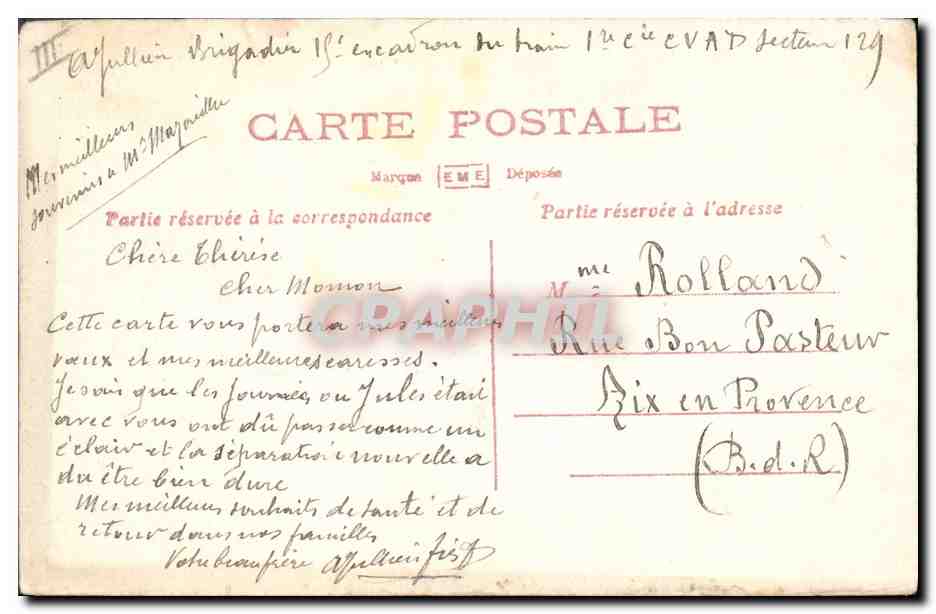 III
AJullien Brigadier 15e escadron du train 1re Cie CVAD Secteur 129
Mes meilleurs
souvenirs a Me
CARTE POSTALE
Marque EME Déposée
Partie réservée à la correspondance
Partie réservée à l'adresse
Chère Thérèse
cher Momon
Cette carte vous portera mes meilleurs
vœux et mes meilleures caresses.
Je sais que les journées ou Jules était
avec vous ont dû passer comme un
éclair et la séparation nouvelle a
du être bien dure
Mes meilleurs souhaits de santé et de
retour dans nos familles
Votre beaufrère AJullien
Mme Rolland
Rue Bon Pasteur
Aix en Provence
(B.d.R)
CPRAPHIL